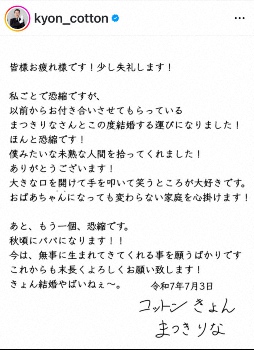 kyon_cotton
皆様お疲れ様です！少し失礼します！
私ごとで恐縮ですが、
以前からお付き合いさせてもらっている
まつきりなさんとこの度結婚する運びになりました！
ほんと恐縮です！
僕みたいな未熟な人間を拾ってくれました！
ありがとうございます！
大きな口を開けて手を叩いて笑うところが大好きです。
おばあちゃんになっても変わらない家庭を心掛けます！
あと、もう一個、恐縮です。
秋頃にパパになります！！
今は、無事に生まれてきてくれる事を願うばかりです
これからも末長くよろしくお願い致します！
きょん結婚やばいねぇ〜。
令和7年7月3日
コットン きょん
まつきりな